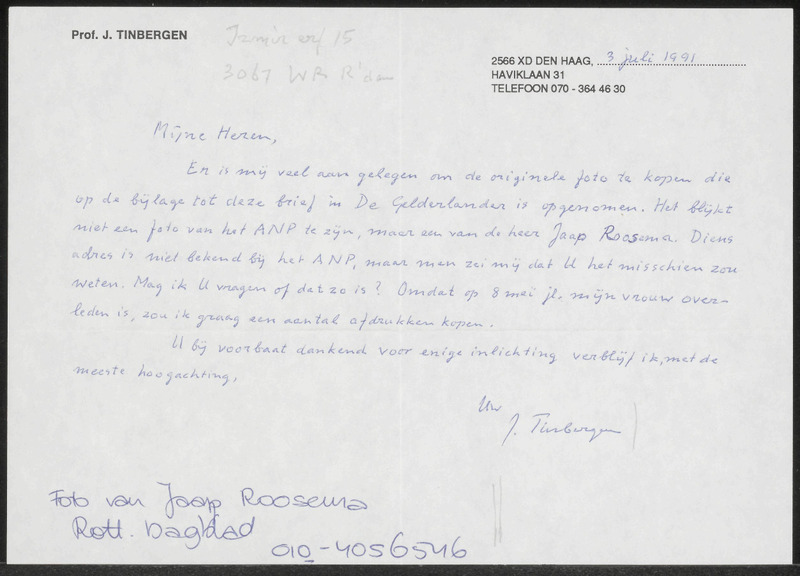 Prof. J. TINBERGEN
erf 15
3067 WR R'dam
2566 XD DEN HAAG, 3 juli 1991
HAVIKLAAN 31
TELEFOON 070 - 364 46 30
Mijne Heren,
Er is mij veel aan gelegen om de originele foto te kopen die
op de bijlage tot deze brief in De Gelderlander is opgenomen. Het blijkt
niet een foto van het ANP te zijn, maar een van de heer Jaap Roosema. Diens
adres is niet bekend bij het ANP, maar men zei mij dat U het misschien zou
weten. Mag ik U vragen of dat zo is? Omdat op 8 mei jl. mijn vrouw over-
leden is, zou ik graag een aantal afdrukken kopen.
U bij voorbaat dankend voor enige inlichting verblijf ik, met de
meeste hoogachting,
Uw
J. Tinbergen
Foto van Jaap Roosema
Rott. Dagblad
010-4056546